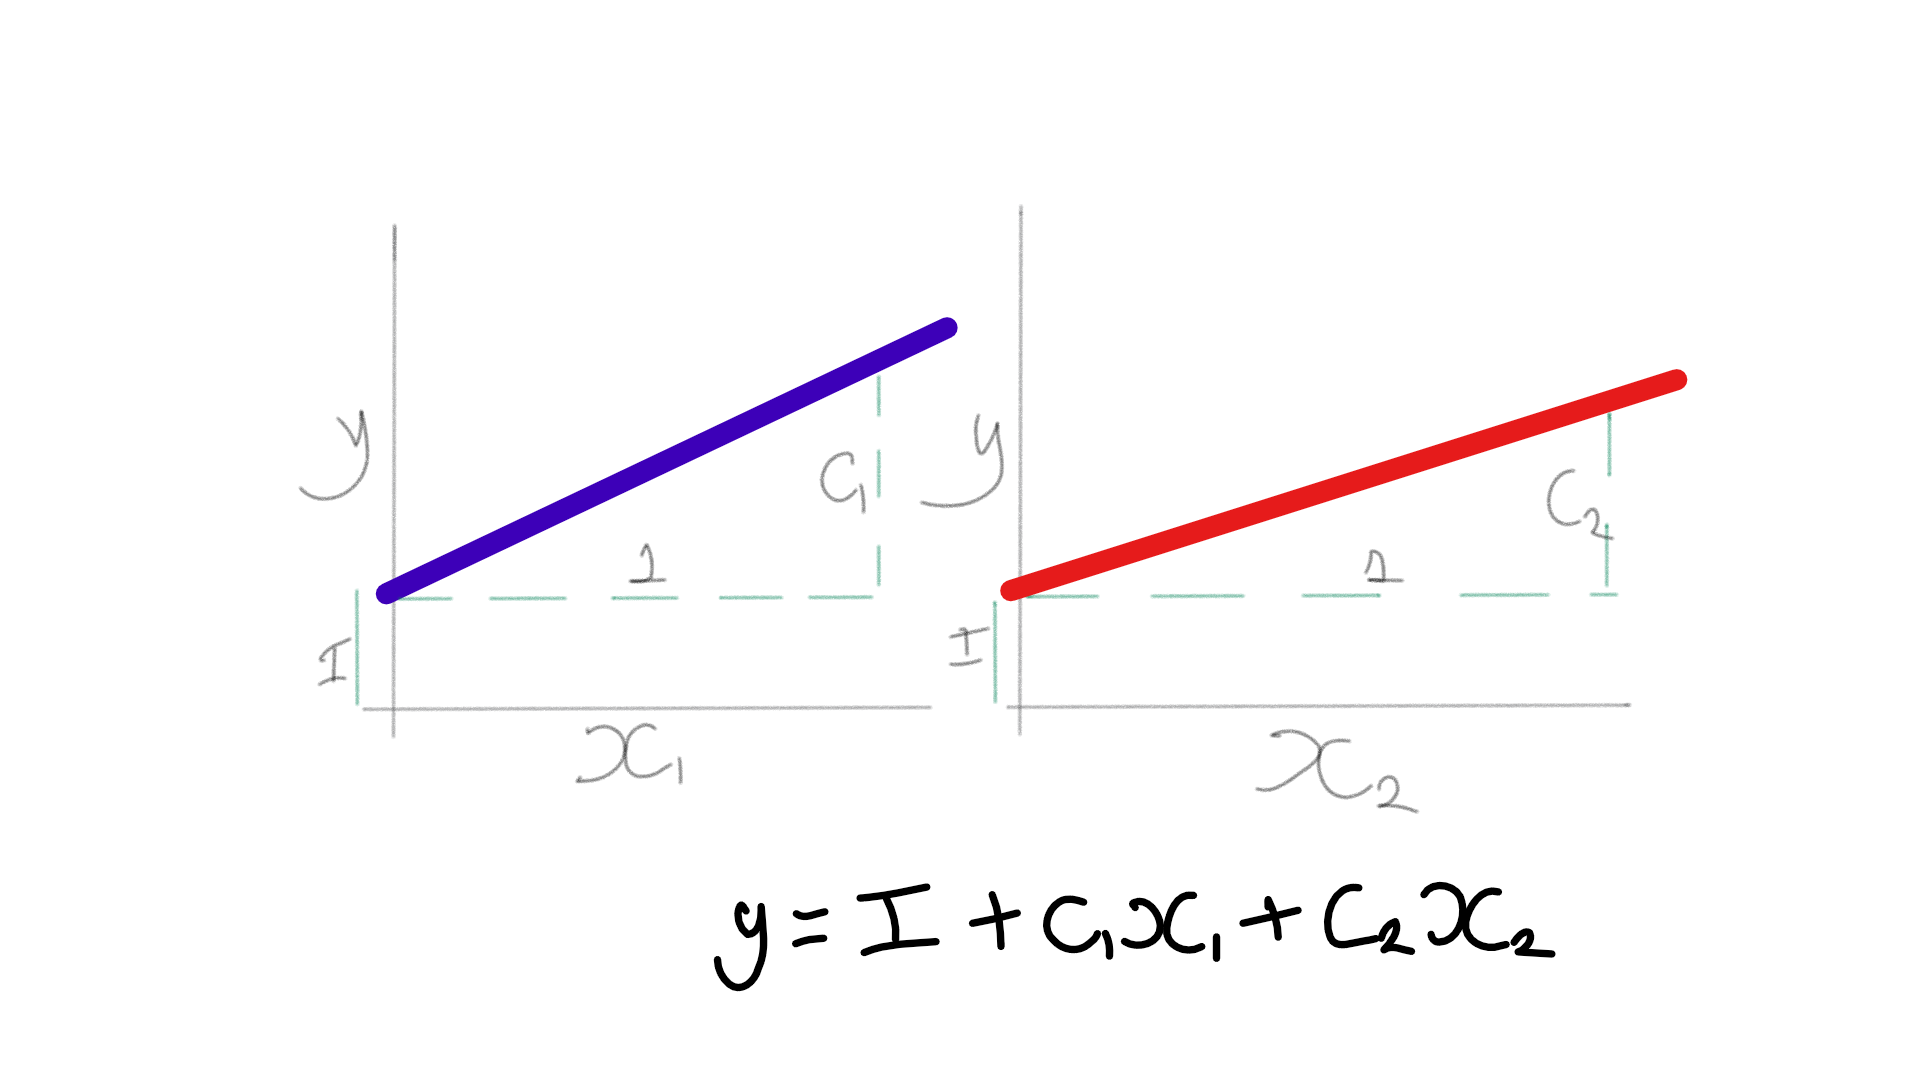 y
C₁
1
I
x₁
y
C₂
1
I
x₂
y = I + C₁x₁ + C₂x₂